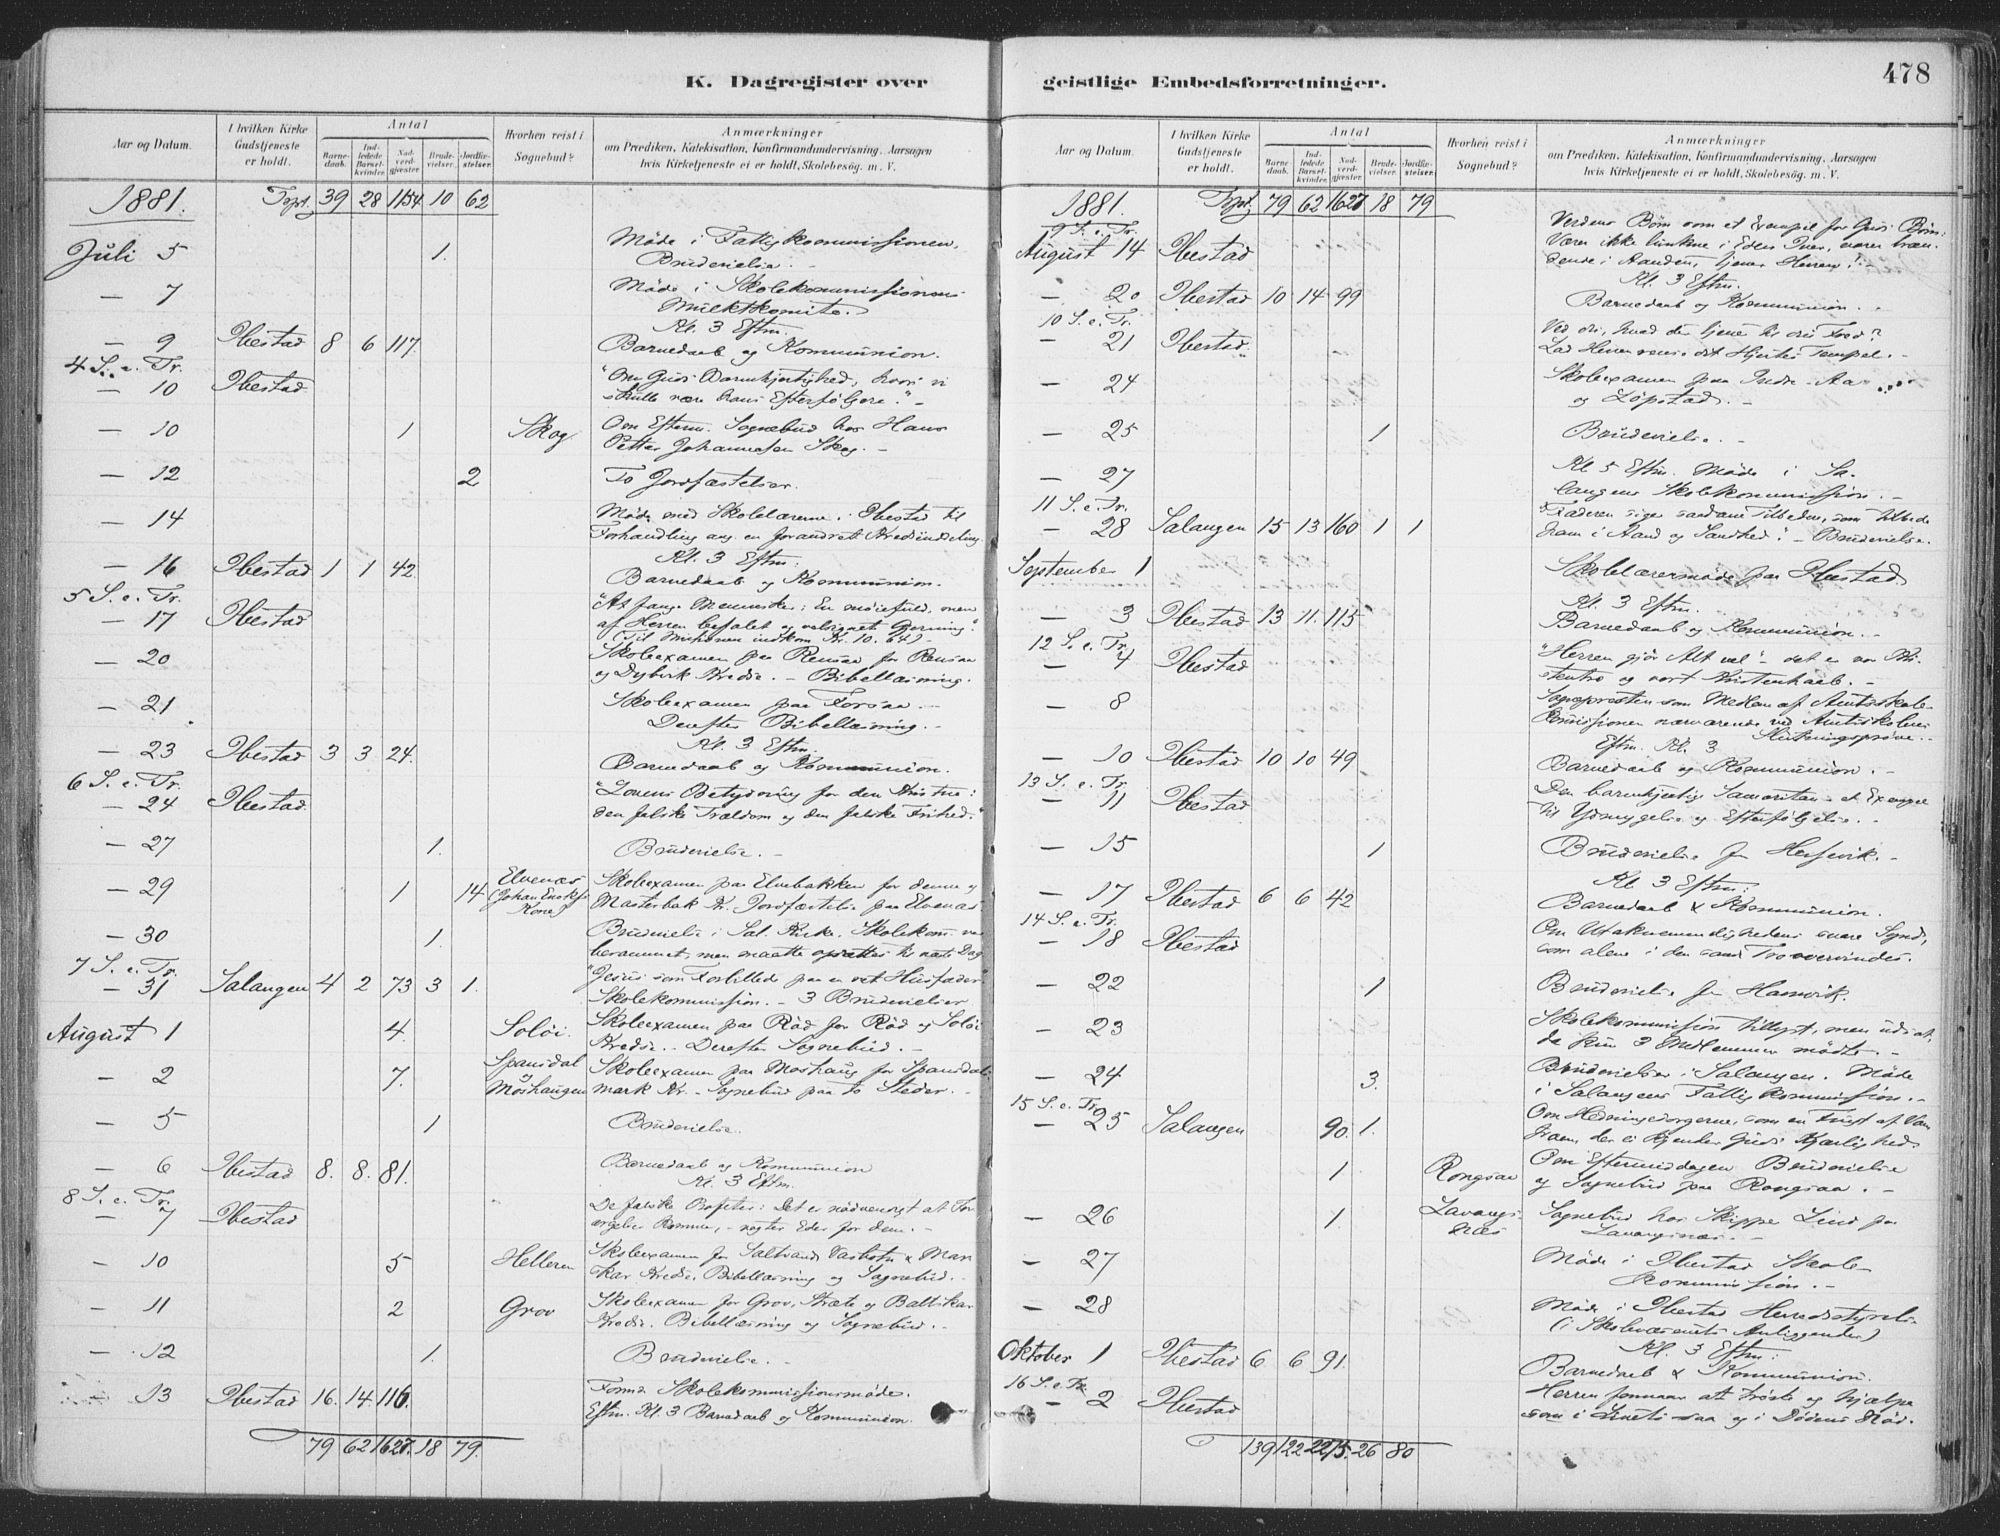 K. Dagregister over
geistlige Embedsforretninger.
478
Aar og Datum.
I hvilken Kirke Gudstjeneste er holdt.
Antal
Barnedaab.
Indledede Barselkvinder.
Nadverdgjester.
Brudevielser.
Jordfæstelser.
Hvorhen reist i Sognebud?
Anmærkninger
om Prædiken, Katekisation, Konfirmandundervisning, Aarsagen
hvis Kirketjeneste ei er holdt, Skolebesøg. m. V.
1881. Trpt. 39 28 1154 10 62
Juli 5 1. Møde i Fattigkommissionen.
Brudevielse. -
- 7 Møde i Skolekommissionens
Kl. 3 Eftm.
- 9 Ibestad 8 6 117. Barnedaab og Kommunion.
4 S. e. Tr.
- 10 Ibestad "Om Guds Barmhjertighed, hvori vi
skulle være hans Efterfølgere." -
- 10 1 Skog. Om Efterm. Sognebud hos Hans
Petter Johannesen Skog. -
- 12 2 To Jordfæstelser.
- 14 Møde med Skolelærerne i Ibestad til
Forhandling ang. en forandret Kredsinddeling
Kl. 3 Eftm.
- 16 Ibestad 1 1 42 Barnedaab og Kommunion.
5 S. e. Tr.
- 17 Ibestad "At fange Mennesker: En møiefuld, men
af Herren befalet og velsignet Gjerning."
(Til Missionen indkom Kr. 10.64) -
- 20 Skoleexamen paa Rensaa for Rensaa
og Dyrvik Kredse. - Bibellæsning.
- 21 Skoleexamen paa Forsaa. -
Derefter Bibellæsning. -
Kl. 3 Eftm.
- 23 Ibestad 3 3 24. Barnedaab og Kommunion.
6 S. e. Tr.
- 24 Ibestad "Lovens Betydning for den Kristne:
den falske Trældom og den falske Frihed."
- 27 1. Brudevielse. -
- 29 1 14 Elvenæs Skoleexamen paa Elvebakken for denne og
Kone) Masterbak Kr. Jordfæstelse paa Elvenæs
- 30 1. Brudevielse i Sal. Kirke. Skolekom. var
berammet, men maatte opsættes til næste Dag
7 S. e. Tr.
- 31 Salangen 4 2 73 3 1. "Jesus som Forbillede paa en ret Husfader"
Skolekommission. - 3 Brudevielser
August 1 4. Soløi. Skoleexamen paa Rød for Rød og Soløi
Kredse. - Derefter Sognebud. -
- 2 7. Spansdal
og
Moshaugen Skoleexamen paa Moshaug for Spansdal
mark Kr. - Sognebud paa to Steder. -
- 5 1 Brudevielse.
- 6 Ibestad 8. 8. 81. Barnedaab og Kommunion
Kl. 3 Eftm.
8 S. e. Tr.
- 7 Ibestad De falske Profeter: Det er nødvendigt at For
argelser komme, - vogter Eder for dem. -
- 10 5 Helleren Skoleexamen for Saltvand Vasbotn & Mar
Kredse, Bibellæsning og Sognebud. -
- 11 2 Grov Skoleexamen for Grov, Stræte og Baltskar
Kredse. Bibellæsning og Sognebud. -
- 12 1. Brudevielse. -
- 13 Ibestad 16. 14. 116. Form. Skolekommissionsmøde.
Eftm. Kl. 3 Barnedaab og Kommunion.
79 62 1627. 18 79.
Aar og Datum.
I hvilken Kirke Gudstjeneste er holdt.
Antal
Barnedaab.
Indledede Barselkvinder.
Nadverdgjester.
Brudevielser.
Jordfæstelser.
Hvorhen reist i Sognebud?
Anmærkninger
om Prædiken, Katekisation, Konfirmandundervisning, Aarsagen
hvis Kirketjeneste ei er holdt, Skolebesøg. m. V.
1881. Trpt. 79 62 1627 18 79
9 S. e. Tr. Verdens Børn som et Exempel for Guds Børn:
August 14 Ibestad Værer ikke lunkne i Eders Iver, værer bræn
dende i Aanden, tjener Herren! -
Kl. 3 Eftm.
- 20 Ibestad 10 14 99 Barnedaab og Kommunion. -
10 S. e. Tr.
- 21 Ibestad. Ved du, hvad der tjener til din Fred?
Lad Herren rense dit Hjertes Tempel. -
- 24 Skoleexamen paa Indre-Aa
og Løpstad. -
- 25 1 Brudevielse. -
- 27 Kl 5 Eftm. Møde i Sa
langens Skolekommission. -
11 S. e. Tr.
- 28 Salangen 15 13 160 1 1 "Faderen søger saadanne Tilbedere, som tilbede
ham i Aand og Sandhed". - Brudevielse.
September 1 Skolelærermøde paa Ibestad
Kl. 3 Eftm.
- 3 Ibestad 13 11. 115 Barnedaab og Kommunion. -
12 S. e. Tr.
- 4 Ibestad "Herren gjør Alt vel" - det er vor Kri
stentro og vort Kristenhaab. -
- 8 Sogneprosten som Medlem af Amtsskole-
kommissionen nærværende ved Amtsskolens
Slutningsprøve. -
Eftm. Kl. 3
- 10 Ibestad 10 10 49 Barnedaab og Kommunion. -
13 S. e. Tr.
- 11 Ibestad Den barmhjertige Samaritan - et Exempel
til Ydmygelse og Efterfølgelse. -
- 15 1 Brudevielse fra
Kl 3 Eftm:
- 17 Ibestad 6 6 42 Barnedaab & Kommunion.
14 S. e. Tr.
- 18 Ibestad Om Utaknemmelighedens svare Synd,
som alene i den sande Tro overvindes.
- 22 1 Brudevielse fra Hamvik.
- 23 Skolekommission tillyst, men udsat,
da kun 3 Medlemmer mødte. -
- 24 3. Brudevielser i Salangen. Møde
i Salangens Fattigkommission. -
15 S. e. Tr.
- 25 Salangen 90. 1. Om Hedningesorgerne som en Frugt af Van
troen, der ei kjender Guds Kjærlighed.
1 Rongsaa Om Eftermiddagen Brudevielse
og Sognebud paa Rongsaa. -
- 26 1. Lavangs-
næs Sognebud hos Skipper Lind paa
Lavangsnæs. -
- 27 Møde i Ibestad Skole-
kommission. -
- 28 Møde i Ibestad Herredsstyrelse
(i Skolevæsenets Anliggender)
Kl. 3 Eftm:
Oktober 1 Ibestad 6 6 91. Barnedaab & Kommunion.
16 S. e. Tr.
- 2 Ibestad Herren formaar at trøste og hjælpe
som i Livets saa og i Dødens Nød.
139 122 2275. 26 80